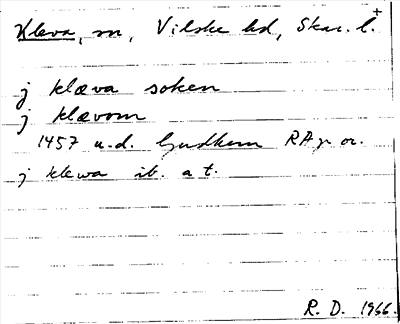 Kleva, sn, Vilske hd, Skar. l. +
j klæva soken
j klævom
1457 u.d. Gudhem RAp or.
j klewa ib. a t.
R. D. 1966.